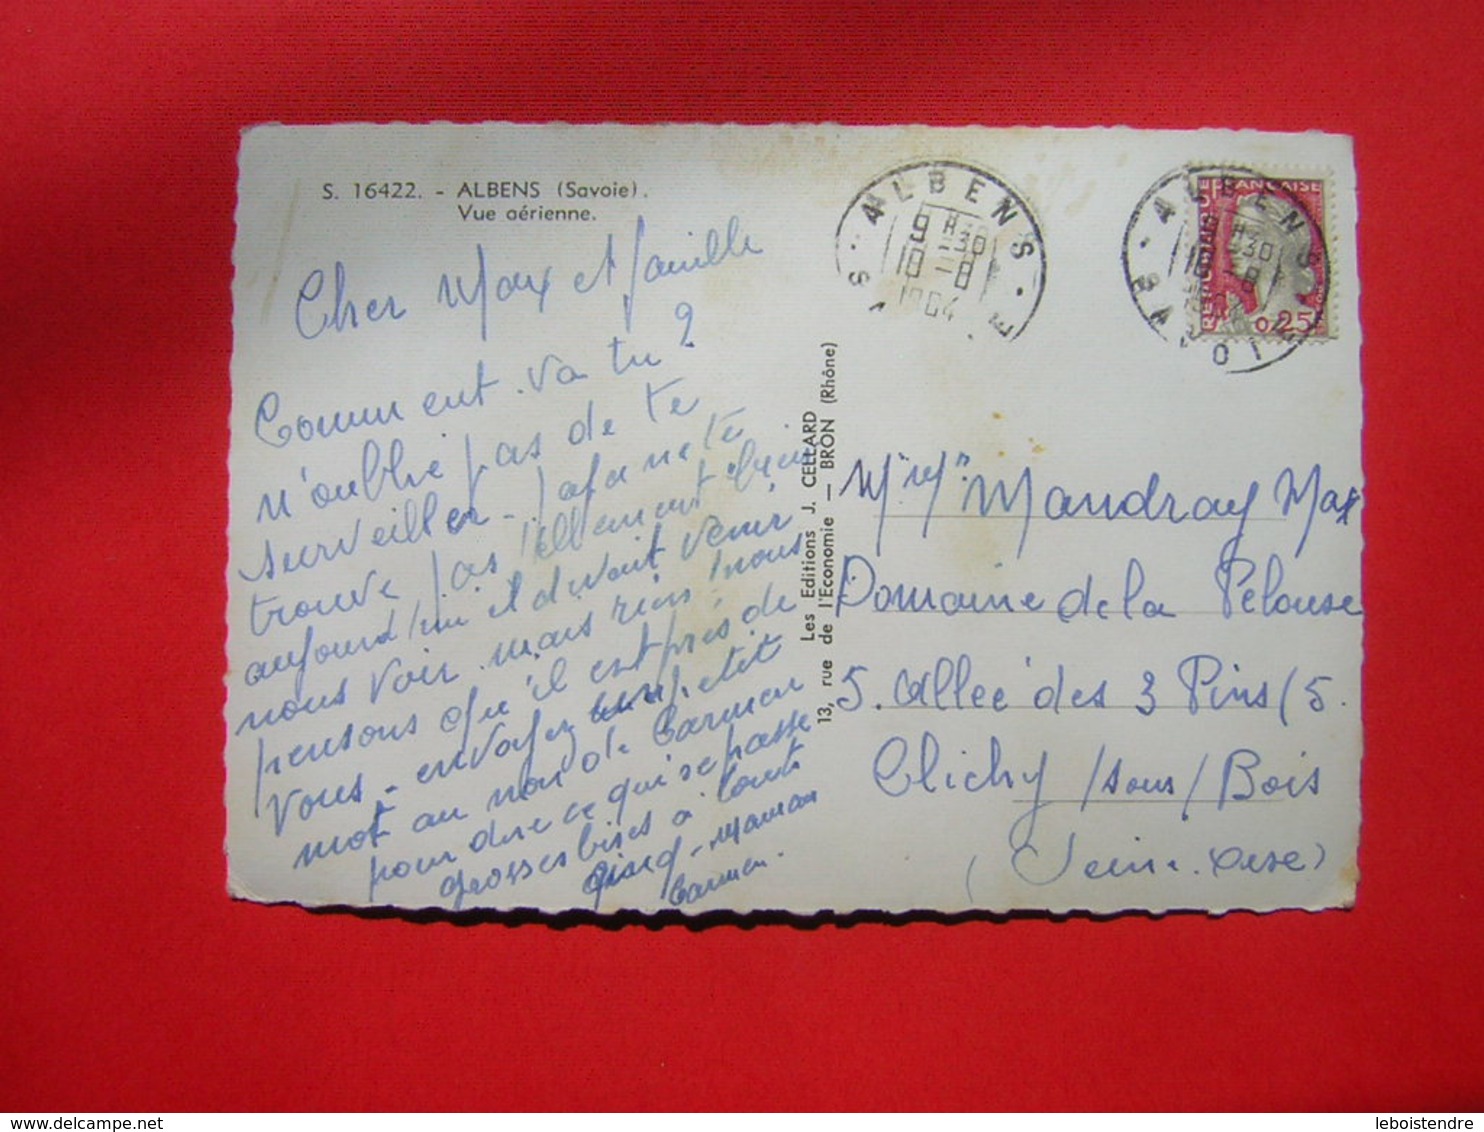 S. 16422. - ALBENS (Savoie).
Vue aérienne.
Cher Max et famille
Comment va tu ?
n'oublie pas de te
surveiller - Jafar ne te
trouve pas tellement bien
aujourd'hui il devait venir
nous voir mais rien nous
pensons qu'il est près de
vous - envoyez un petit
mot au nom de Carmen
pour dire ce qui se passe
grosses bises à tous
maman
Carmen.
Les Editions J. CELLARD
13, rue de l'Economie — BRON (Rhône)
ALBENS
SAVOIE
9 H 30
10 - 8
1964
ALBENS
SAVOIE
REPUBLIQUE FRANÇAISE
0,25
Mr Mme Mandray Max
Domaine de la Pelouse
5. Allée des 3 Pins (5.
Clichy / sous / Bois
(Seine. Oise)
leboistendre